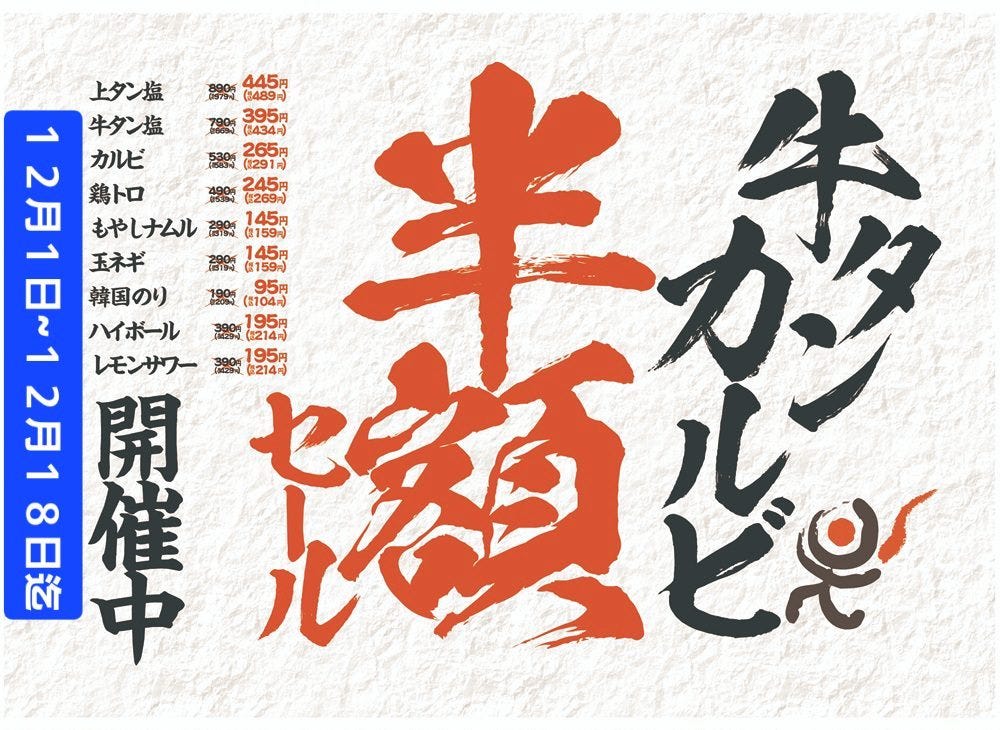 牛タン
カルビ
半額
セール
上タン塩 890円 445円 (税込489円)
牛タン塩 790円 395円 (税込434円)
カルビ 530円 265円 (税込291円)
鶏トロ 490円 245円 (税込269円)
もやしナムル 290円 145円 (税込159円)
玉ネギ 290円 145円 (税込159円)
韓国のり 190円 95円 (税込104円)
ハイボール 390円 195円 (税込214円)
レモンサワー 390円 195円 (税込214円)
開催中
12月1日~12月18日迄